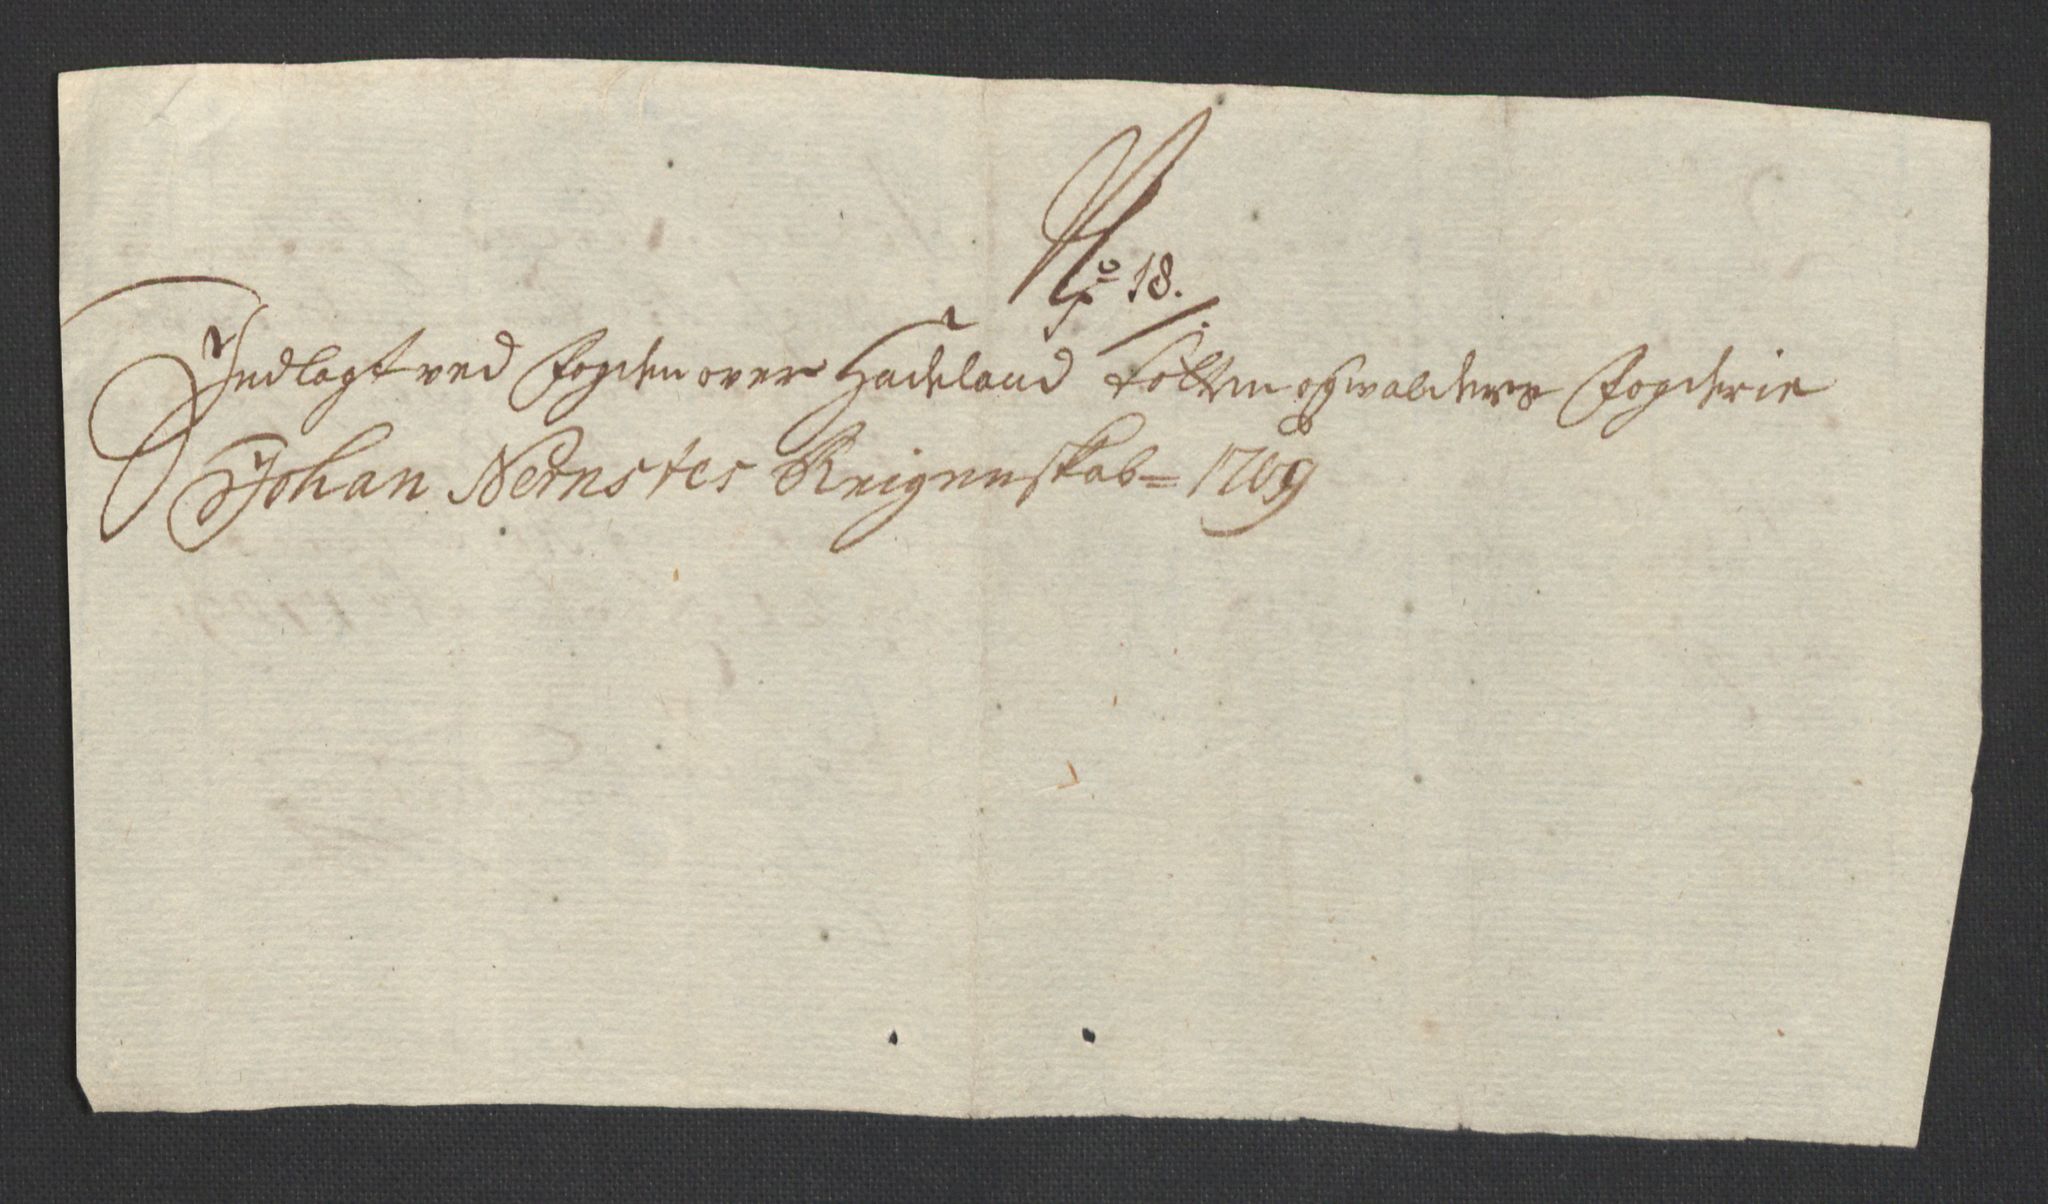 No 18.
Indlagt ved Fogden over Hadeland Totten og Walders Fogderie
Johan Nernstes Reigenskab = 1709